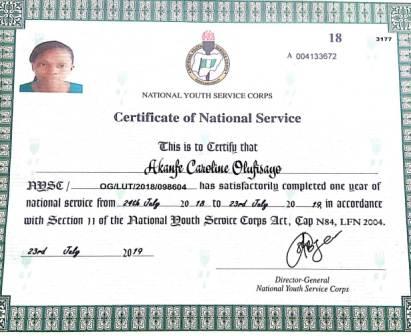 18
3177
A 004133672
NATIONAL YOUTH SERVICE CORPS
Certificate of National Service
This is to Certify that
Akanfe Caroline Olufisayo
NYSC / OG/LUT/2018/098604 has satisfactorily completed one year of
national service from 24th July 20 18 to 23rd July 20 19, in accordance
with Section 11 of the National Youth Service Corps Act, Cap N84, LFN 2004.
23rd July 2019
Director-General
National Youth Service Corps